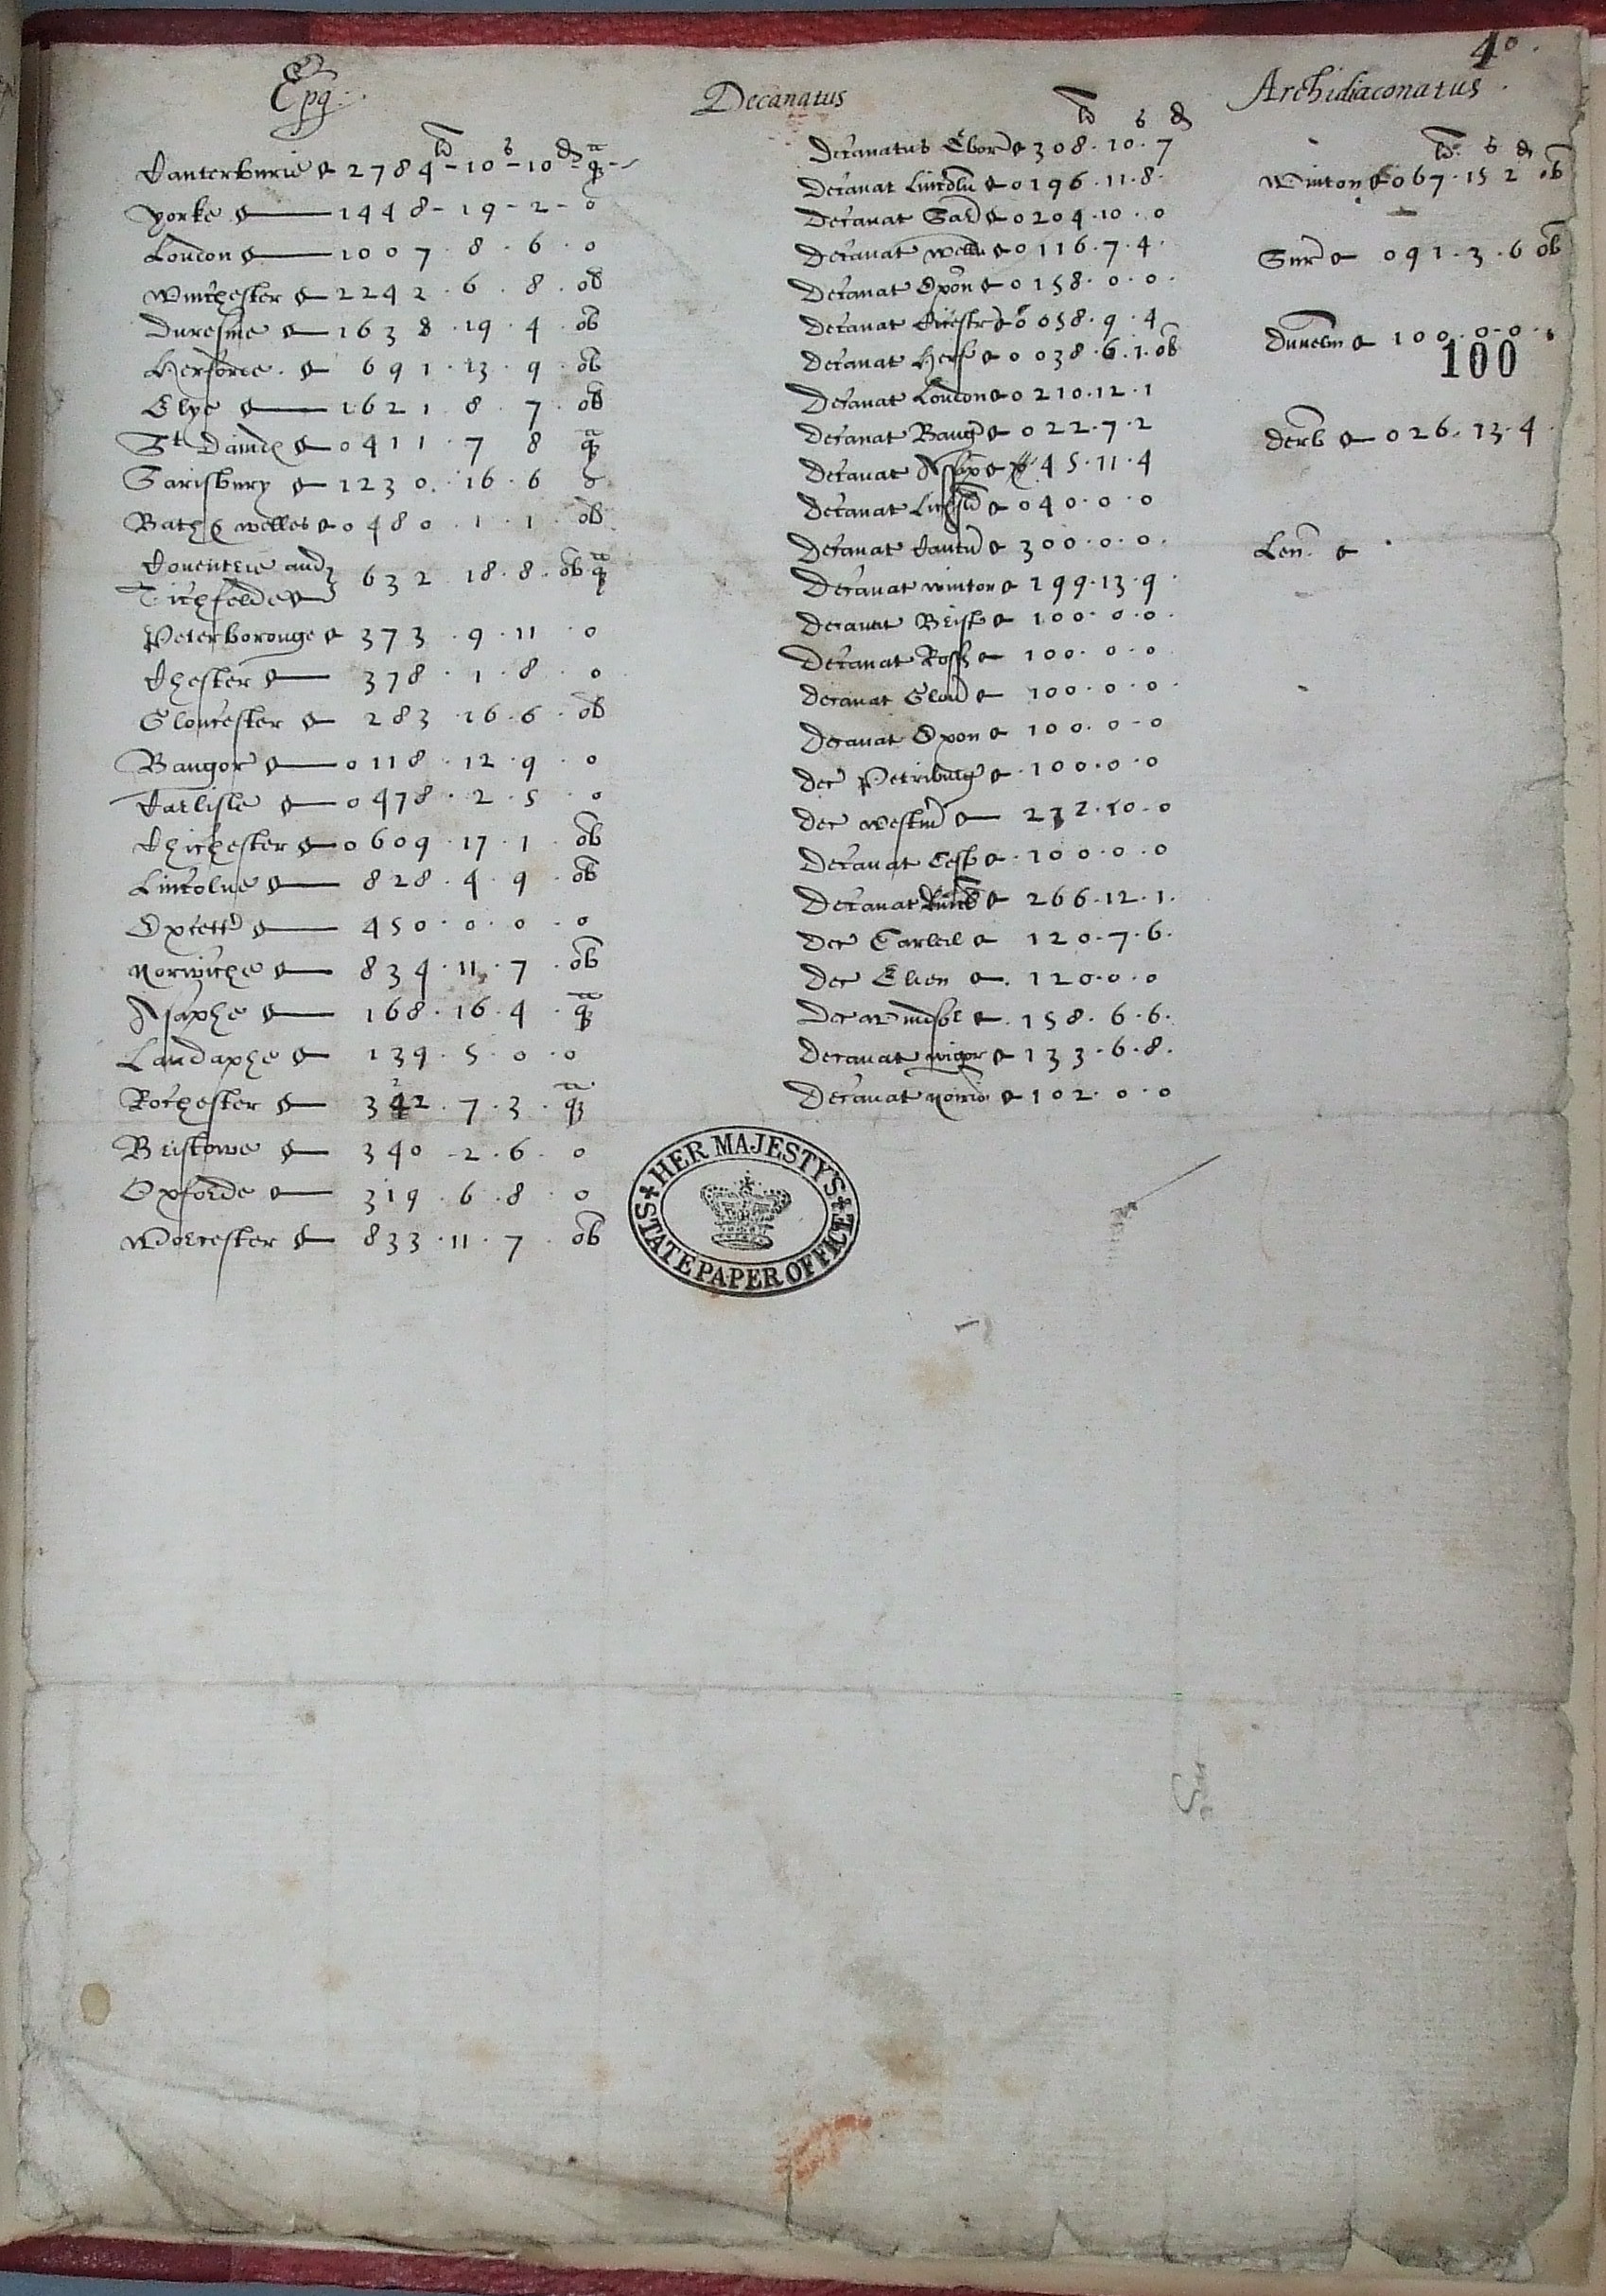 40.
Epi
li s d q
Canterburie 2784 - 10 - 10 - q
yorke 1448 - 19 - 2 - 0
London 1007 . 8 . 6 . 0
winchester 2242 . 6 . 8 . ob
Duresme 1638 . 19 . 4 . ob
Herforde . 691 . 13 . 9 . ob
Elye 1621 . 8 . 7 . ob
St Dauids 0411 . 7 8 q
Sarisbury 1230 . 16 . 6
Bath & welles 0480 . 1 . 1 . ob
Couentrie and
Lichfelde 632 . 18 . 8 . ob q
Peterborouge 373 . 9 . 11 . 0
Chester 378 . 1 . 8 . 0
Gloucester 283 . 16 . 6 . ob
Bangor 0118 . 12 . 9 . 0
Carlisle 0478 . 2 . 5 . 0
Chichester 0609 . 17 . 1 . ob
Lincolne 828 . 4 . 9 . ob
Excett 450 . 0 . 0 . 0
Norwiche 834 . 11 . 7 . ob
Asaphe 168 . 16 . 4 . q
Landaphe 139 . 5 . 0 . 0
Rochester 342 . 7 . 3 . q
Bristowe 340 - 2 . 6 . 0
Oxforde 319 . 6 . 8 . 0
Worcester 833 . 11 . 7 . ob
Decanatus
li s d
Decanatus Ebor 308 . 10 . 7
Decanat Lincoln 0196 . 11 . 8 .
Decanat Sar 0204 . 10 . 0
Decanat welln 0116 . 7 . 4 .
Decanat Exon 0158 . 0 . 0 .
Decanat Cicestr 0058 . 9 . 4
Decanat Heref 0038 . 6 . 1 . ob
Decanat London 0210 . 12 . 1
Decanat Bang 022 . 7 . 2
Decanat Assaph 45 . 11 . 4
Decanat Lichfld 040 . 0 . 0
Decanat Cantu 300 . 0 . 0 .
Decanat winton 199 . 13 . 9 .
Decanat Brist 100 . 0 . 0 .
Decanat Roff 100 . 0 . 0
Decanat Glou 100 . 0 . 0 .
Decanat Oxon 100 . 0 - 0
Dec Petriburg . 100 . 0 . 0
Dec westm 232 . 10 . 0
Decanat Cest . 100 . 0 . 0
Decanat 266 . 12 . 1 .
Dec Carleil 120 . 7 . 6 .
Dec Elien . 120 . 0 . 0
Dec windsor . 158 . 6 . 6 .
Decanat wigor 133 . 6 . 8 .
Decanat Norwic 102 . 0 . 0
Archidiaconatus .
li s d
Winton 067 . 15 2 ob
Surr 091 . 3 . 6 ob
Dunelm 100 . 0 - 0 .
100
Derb 026 . 13 . 4 .
Len .
HER MAJESTY'S
STATE PAPER OFFICE